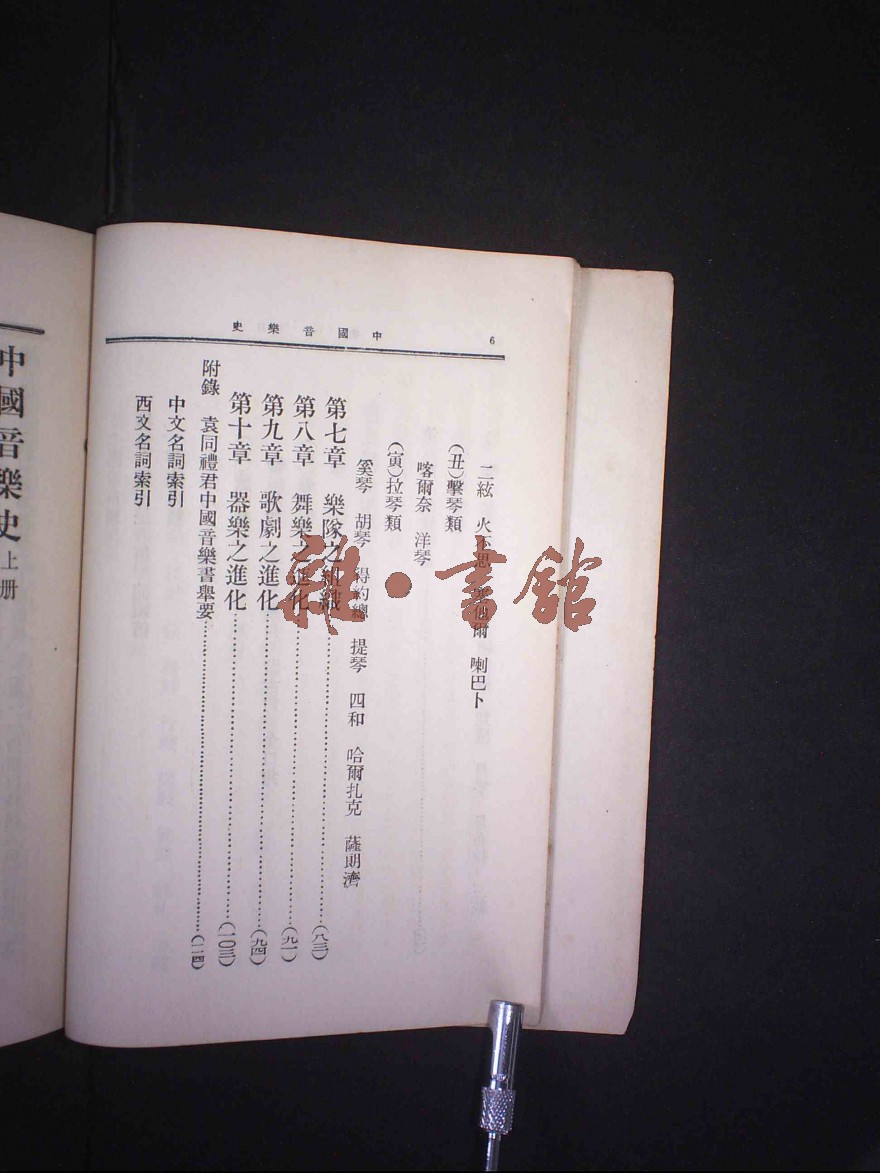 中國音樂史
6
二絃　火不思　塞他爾　喇巴卜
(丑)擊琴類
喀爾奈　洋琴
(寅)拉琴類
奚琴　胡琴　得約總　提琴　四和　哈爾扎克　薩朗濟
第七章　樂隊之組織……(八三)
第八章　舞樂之進化……(九一)
第九章　歌劇之進化……(九四)
第十章　器樂之進化……(一〇三)
附錄　袁同禮君中國音樂書舉要……(一一四)
中文名詞索引
西文名詞索引
中國音樂史上册
雜·書館